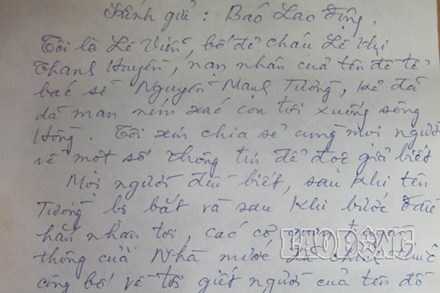 Kính gửi : Báo Lao Động.
Tôi là Lê Viễn, bố đẻ cháu Lê Thị
Thanh Huyền, nạn nhân của tên đồ tể
bác sĩ Nguyễn Mạnh Tường, kẻ đã
dã man ném xác con tôi xuống sông
Hồng. Tôi xin chia sẻ cùng mọi người
về một số thông tin để đọc giả biết
Mọi người đều biết, sau khi tên
Tường bị bắt và sau khi bước
hắn nhận tội, các cơ
thống của Nhà nước
công bố về tội giết người của tên đồ